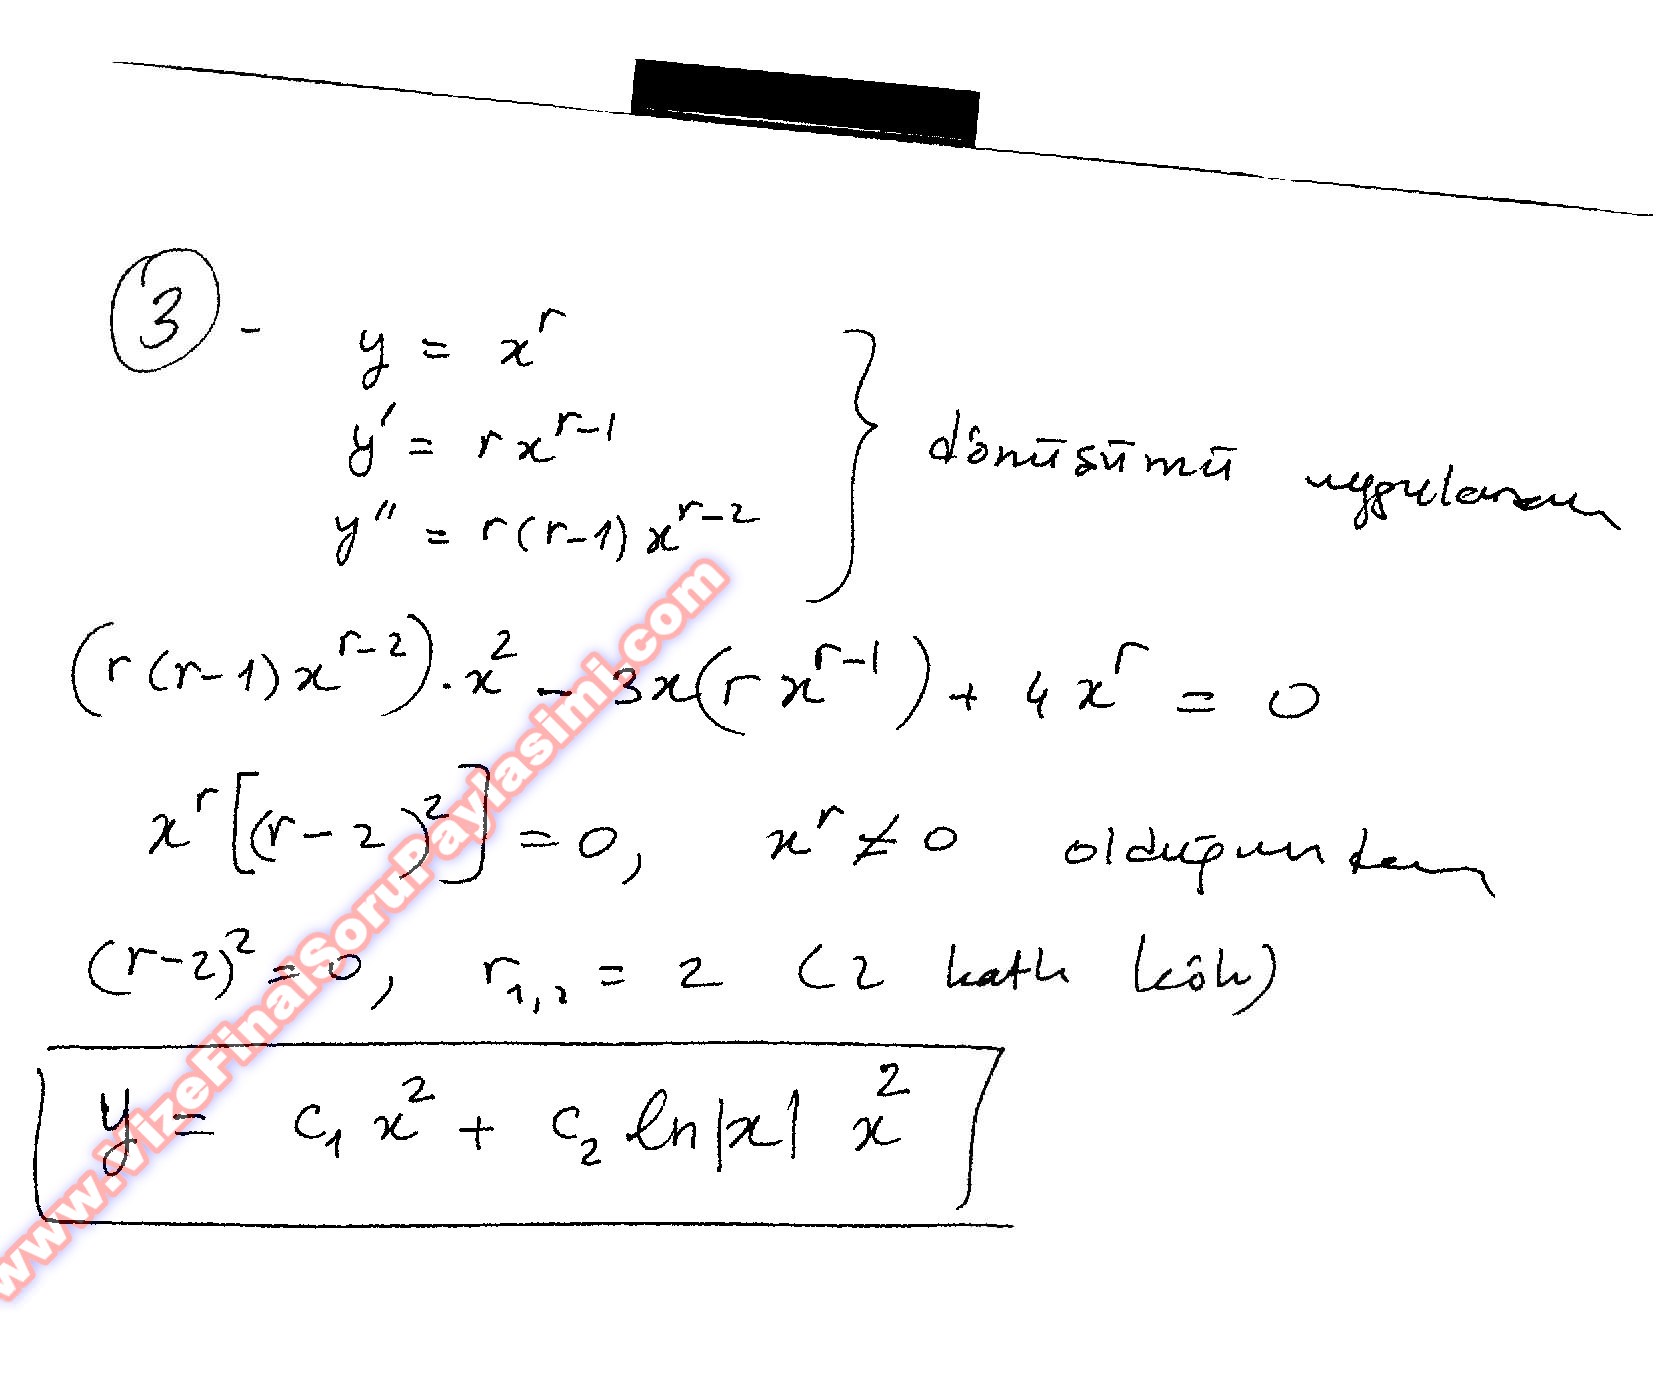 3 -
y = x^r
y' = r x^{r-1}
y'' = r(r-1) x^{r-2}
dönüşümü uygulanan
(r(r-1) x^{r-2}) . x^2 - 3x(r x^{r-1}) + 4 x^r = 0
x^r [(r-2)^2] = 0, x^r ≠ 0 olduğundan
(r-2)^2 = 0, r_{1,2} = 2 (2 katlı kök)
y = c_1 x^2 + c_2 ln|x| x^2
www.VizeFinalSoruPaylasimi.com